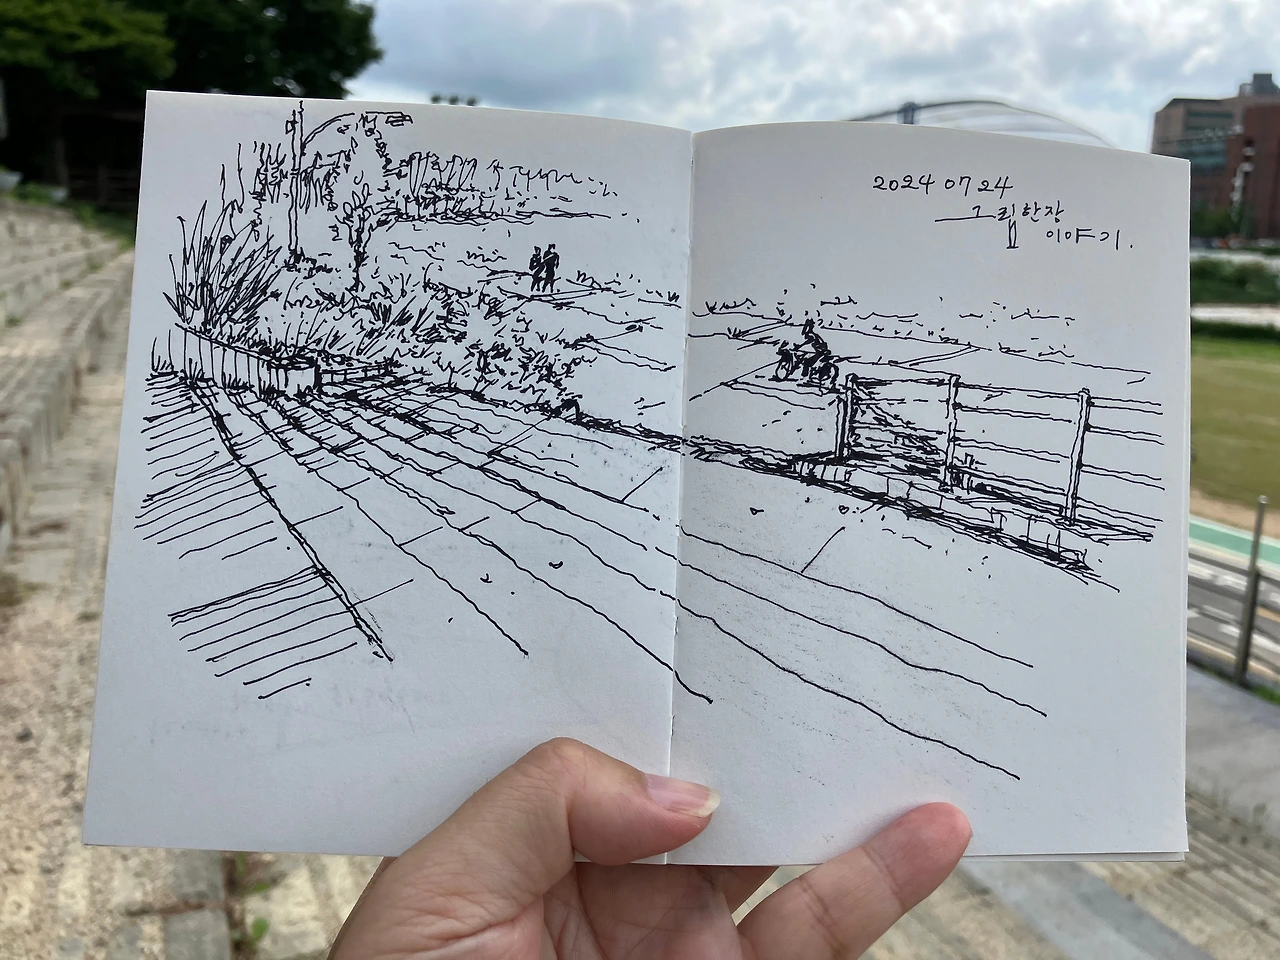 2024 07 24
그림한장
이야기.